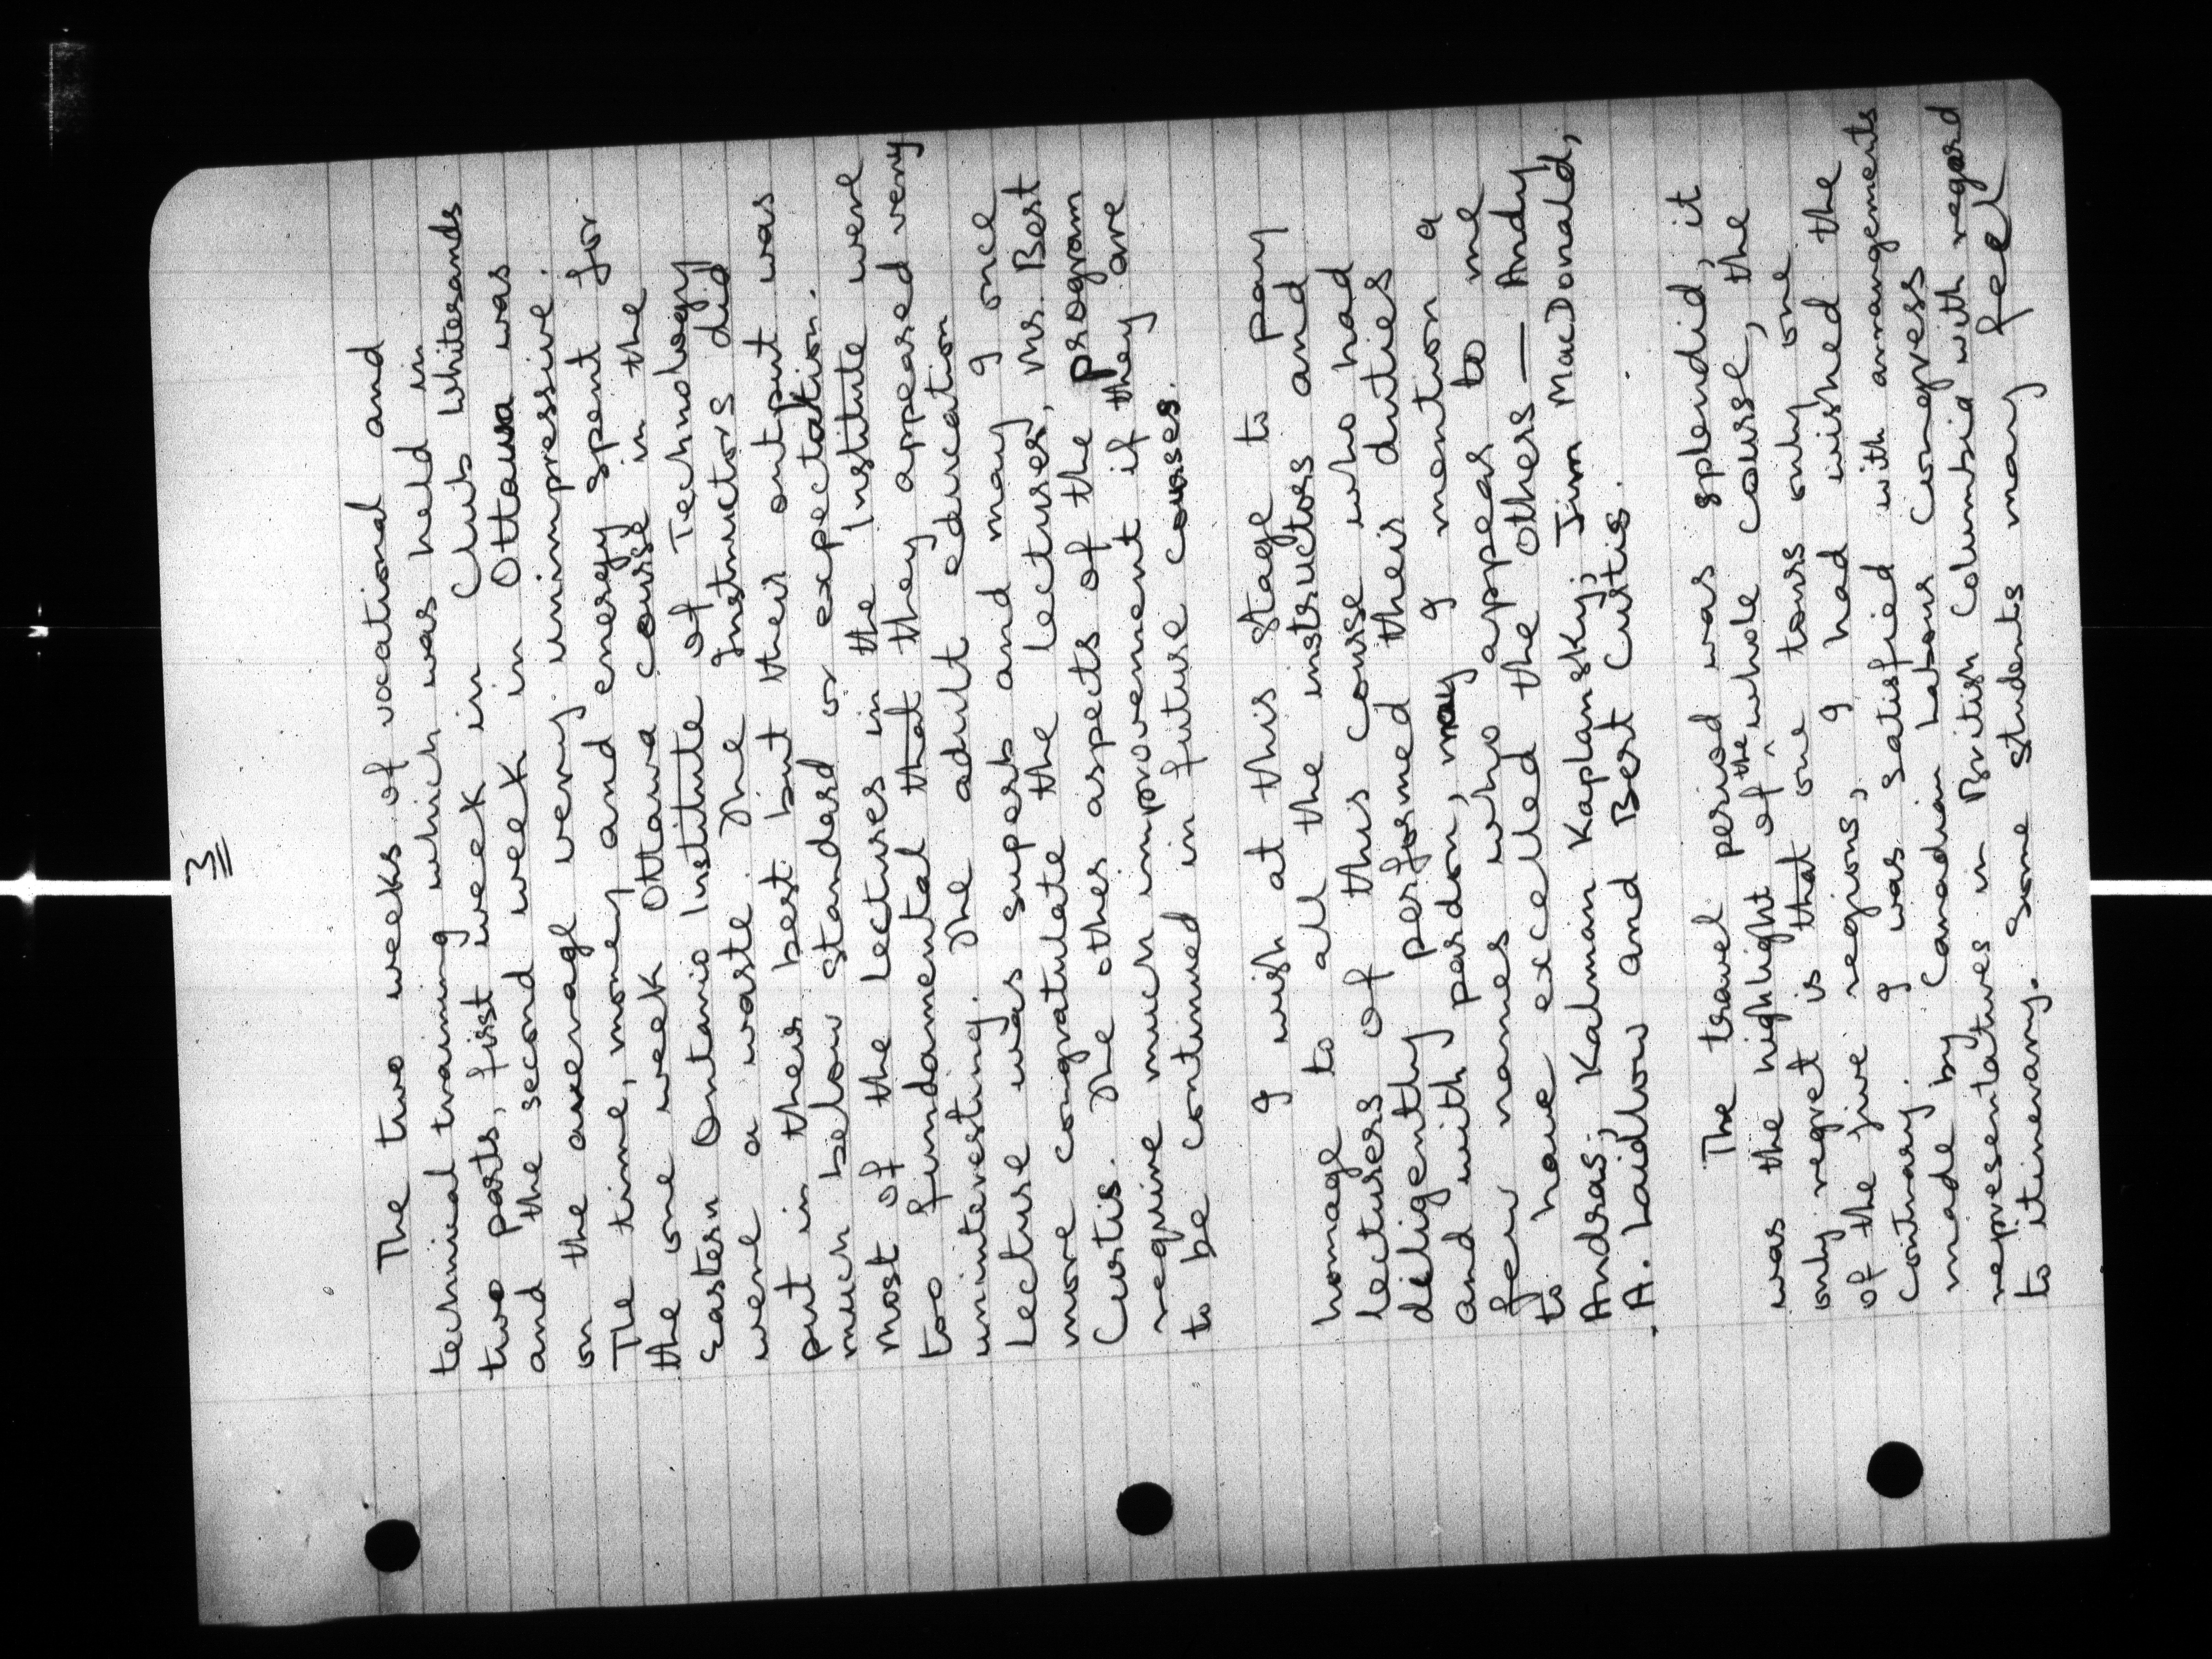 3
The two weeks of vocational and
technical training which was held in
two parts, first week in Club Whitesands
and the second week in Ottawa was
on the average very unimpressive.
The time, money and energy spent for
the one week Ottawa course in the
Eastern Ontario Institute of Technology
were a waste. The Instructors did
put in their best but their output was
much below standard or expectation.
Most of the lectures in the Institute were
too fundamental that they appeared very
uninteresting. The adult education
lecture was superb and may I once
more congratulate the lecturer, Mr. Bert
Curtis. The other aspects of the program
require much improvement if they are
to be continued in future courses.
I wish at this stage to pay
homage to all the instructors and
lecturers of this course who had
diligently performed their duties
and with pardon, may I mention a
few names who appear to me
to have excelled the others — Andy
Andras; Kalman Kaplansky; Jim MacDonald;
A. Laidlow and Bert Curtis.
The travel period was splendid, it
was the highlight of the whole course, the
only regret is that one tours only one
of the five regions, I had wished the
contrary. I was satisfied with arrangements
made by Canadian Labour Congress
representatives in British Columbia with regard
to itinerary. Some students may feel